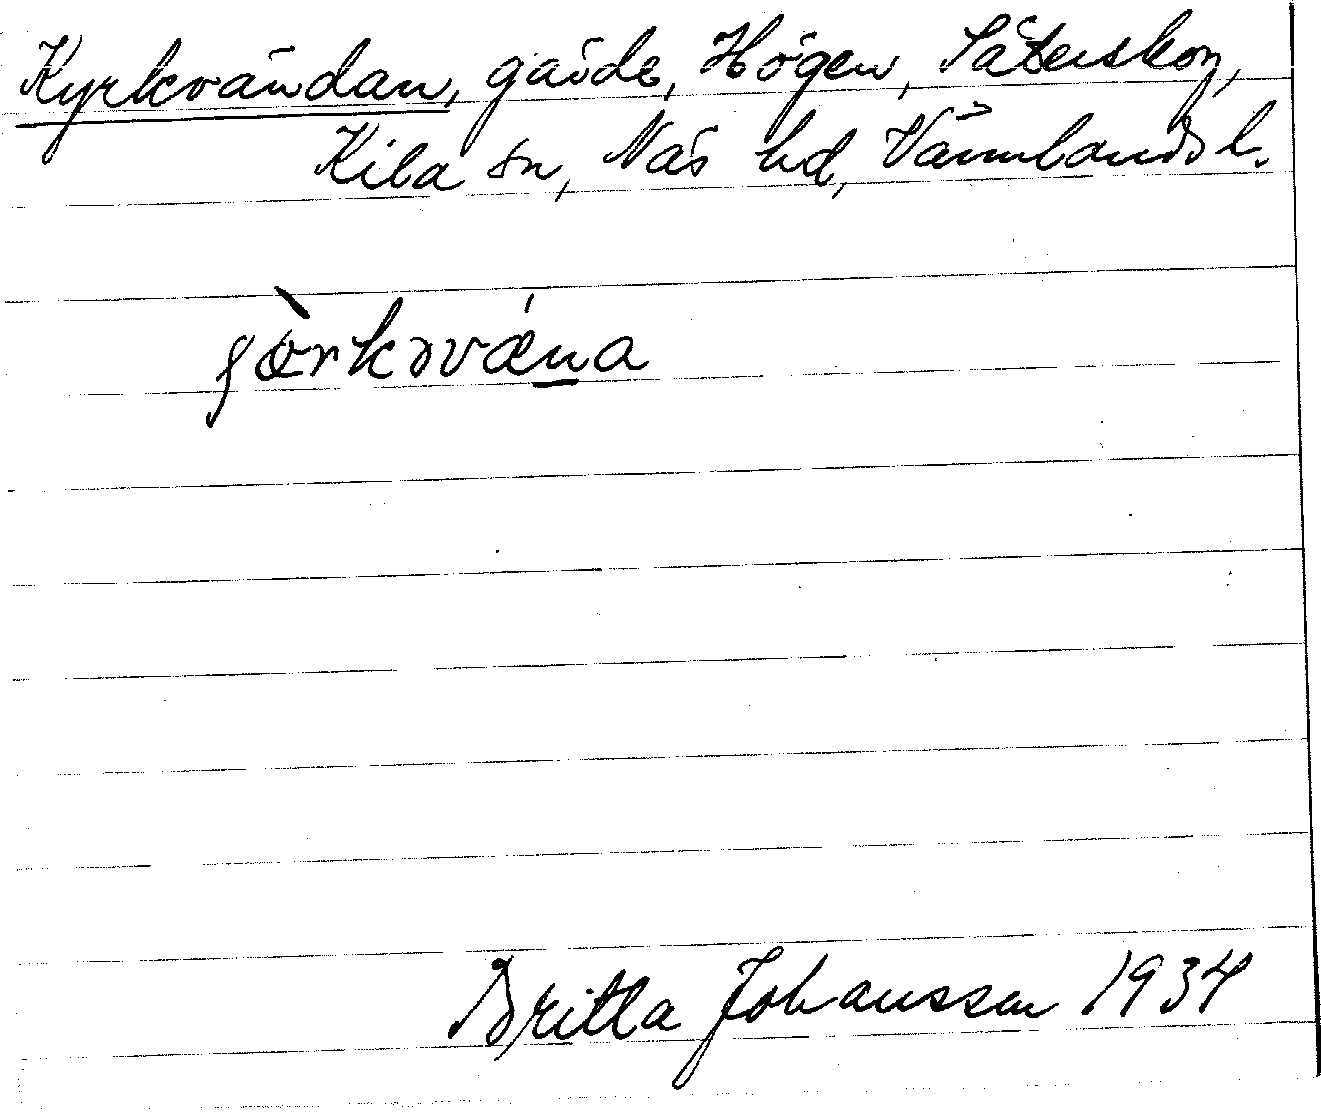 Kyrkvändan, gärde, Högen, Säterskog,
Kila sn, Näs hd, Värmlands l.
ʃö̀rkəvǽna
Britta Johansson 1934